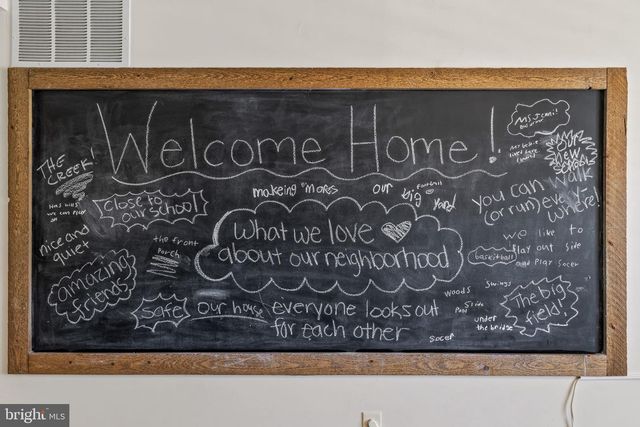 Welcome Home!
THE CREEK!
Has hills
we can play
nice and
quiet
amazing
friends
close to
our school
the front
Porch
safe
our house
making smores
our big yard
football
what we love
about our neighborhood
everyone looks out
for each other
Ms Jenni!
Our
new
school!
you can walk
(or run) every-
where!
we like to
Play out side
and Play Socer
basketball
woods
Swings
Slide
under
the bridge
The big
field!
Socer
bright MLS